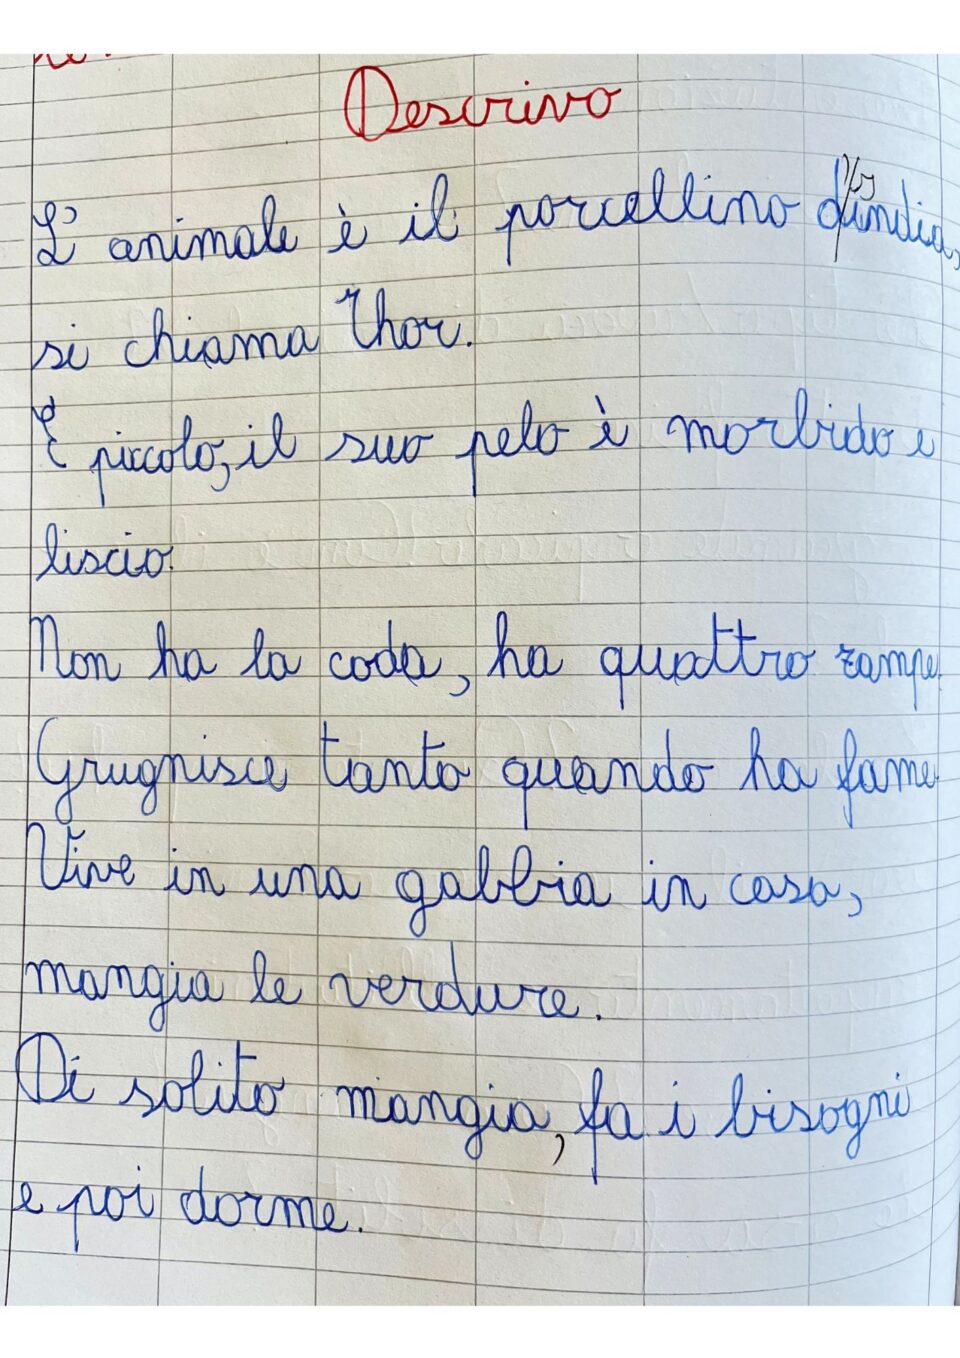 Descrivo
L'animale è il porcellino d'india,
si chiama Thor.
È piccolo, il suo pelo è morbido e
liscio.
Non ha la coda, ha quattro zampe.
Grugnisce tanto quando ha fame.
Vive in una gabbia in casa,
mangia le verdure.
Di solito mangia, fa i bisogni
e poi dorme.